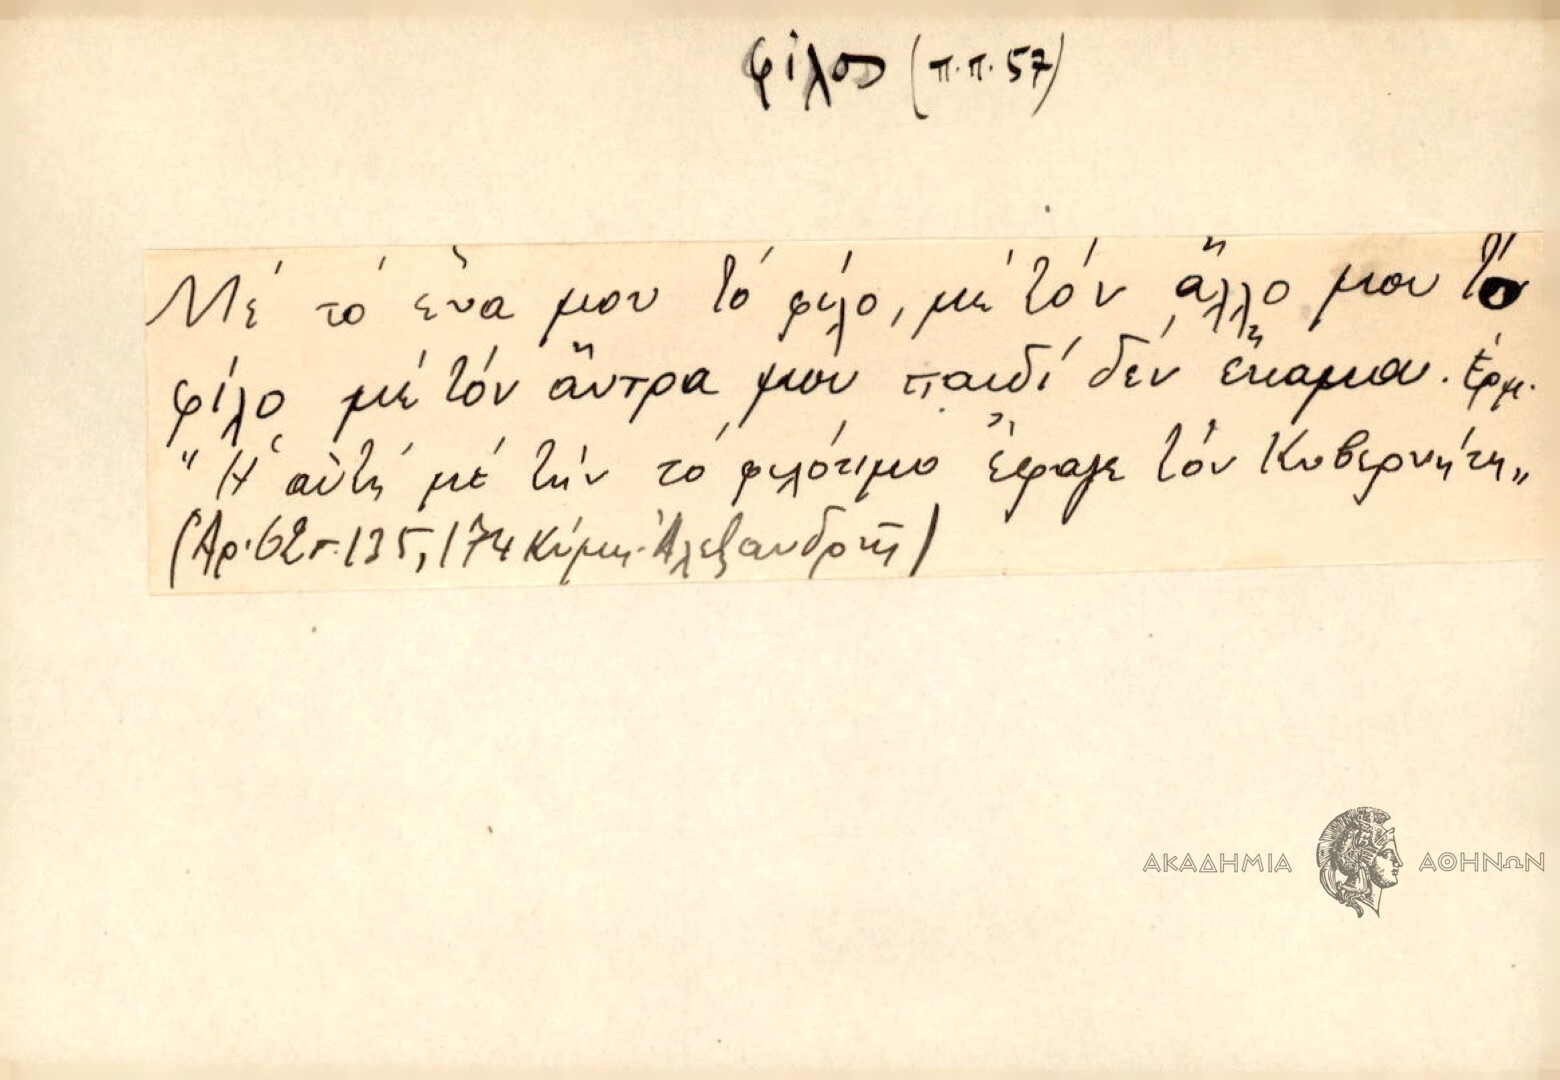 φίλος (π.π. 57)
Μέ τό ἕνα μου τό φίλο, μέ τόν ἄλλο μου τό
φίλο μέ τόν ἄντρα μου παιδί δέν ἔκαμα. Ἑρμ.
"Ἡ αὐτή μέ τήν τό φιλότιμο ἔφαγε τόν Κυβερνήτη"
(Ἀρ. 62 σ. 135, 174 Κύμη. Ἀλεξανδρῆ)
ΑΚΑΔΗΜΙΑ ΑΘΗΝΩΝ